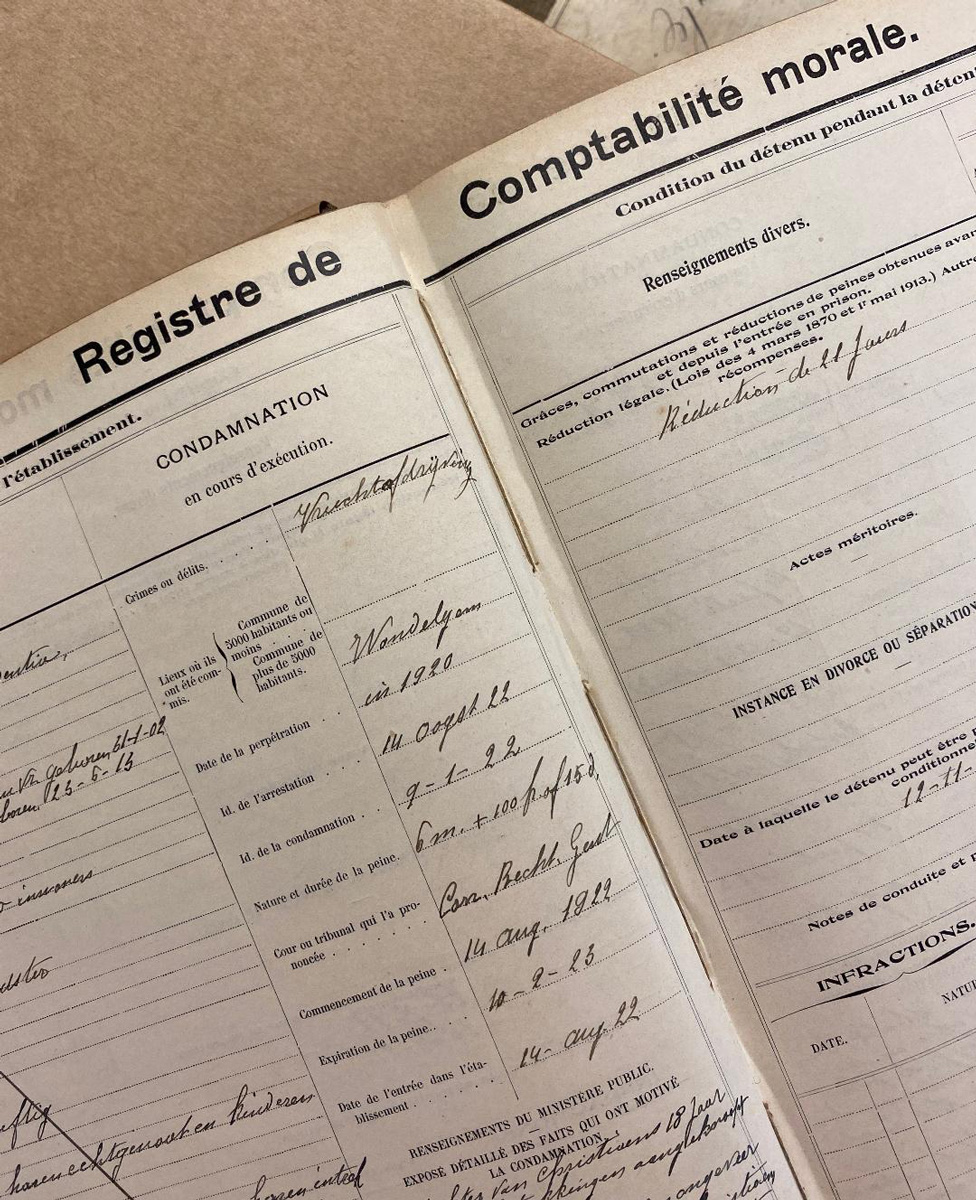 Registre de
l'établissement.
CONDAMNATION
en cours d'exécution.
Crimes ou délits. . . . . .
Vruchtafdrijving
Lieux où ils ont été commis.
Commune de 5000 habitants ou moins
Commune de plus de 5000 habitants.
Wondelgem
Date de la perpétration . . .
in 1920
Id. de l'arrestation . . . .
14 oogst 22
Id. de la condamnation . .
9-1-22
Nature et durée de la peine.
6 m. + 100 f. of 15 d.
Cour ou tribunal qui l'a prononcée . . . . . .
Corr. Recht. Gent
Commencement de la peine .
14 aug. 1922
Expiration de la peine. . . .
10-2-23
Date de l'entrée dans l'établissement . . . . . .
14- aug 22
RENSEIGNEMENTS DU MINISTÈRE PUBLIC.
EXPOSÉ DÉTAILLÉ DES FAITS QUI ONT MOTIVÉ
LA CONDAMNATION.
van Christiaens 18 Jaar
geboren 31-1-02
25-5-13
echtgenoot en kinderen
Comptabilité morale.
Condition du détenu pendant la déten
Renseignements divers.
Grâces, commutations et réductions de peines obtenues avan
et depuis l'entrée en prison.
Réduction légale. (Lois des 4 mars 1870 et 1r mai 1913.) Autre
récompenses.
Réduction de 21 jours
Actes méritoires.
INSTANCE EN DIVORCE OU SÉPARATION
Date à laquelle le détenu peut être
conditionne
12-11-
Notes de conduite et
INFRACTIONS.
DATE.
NATU